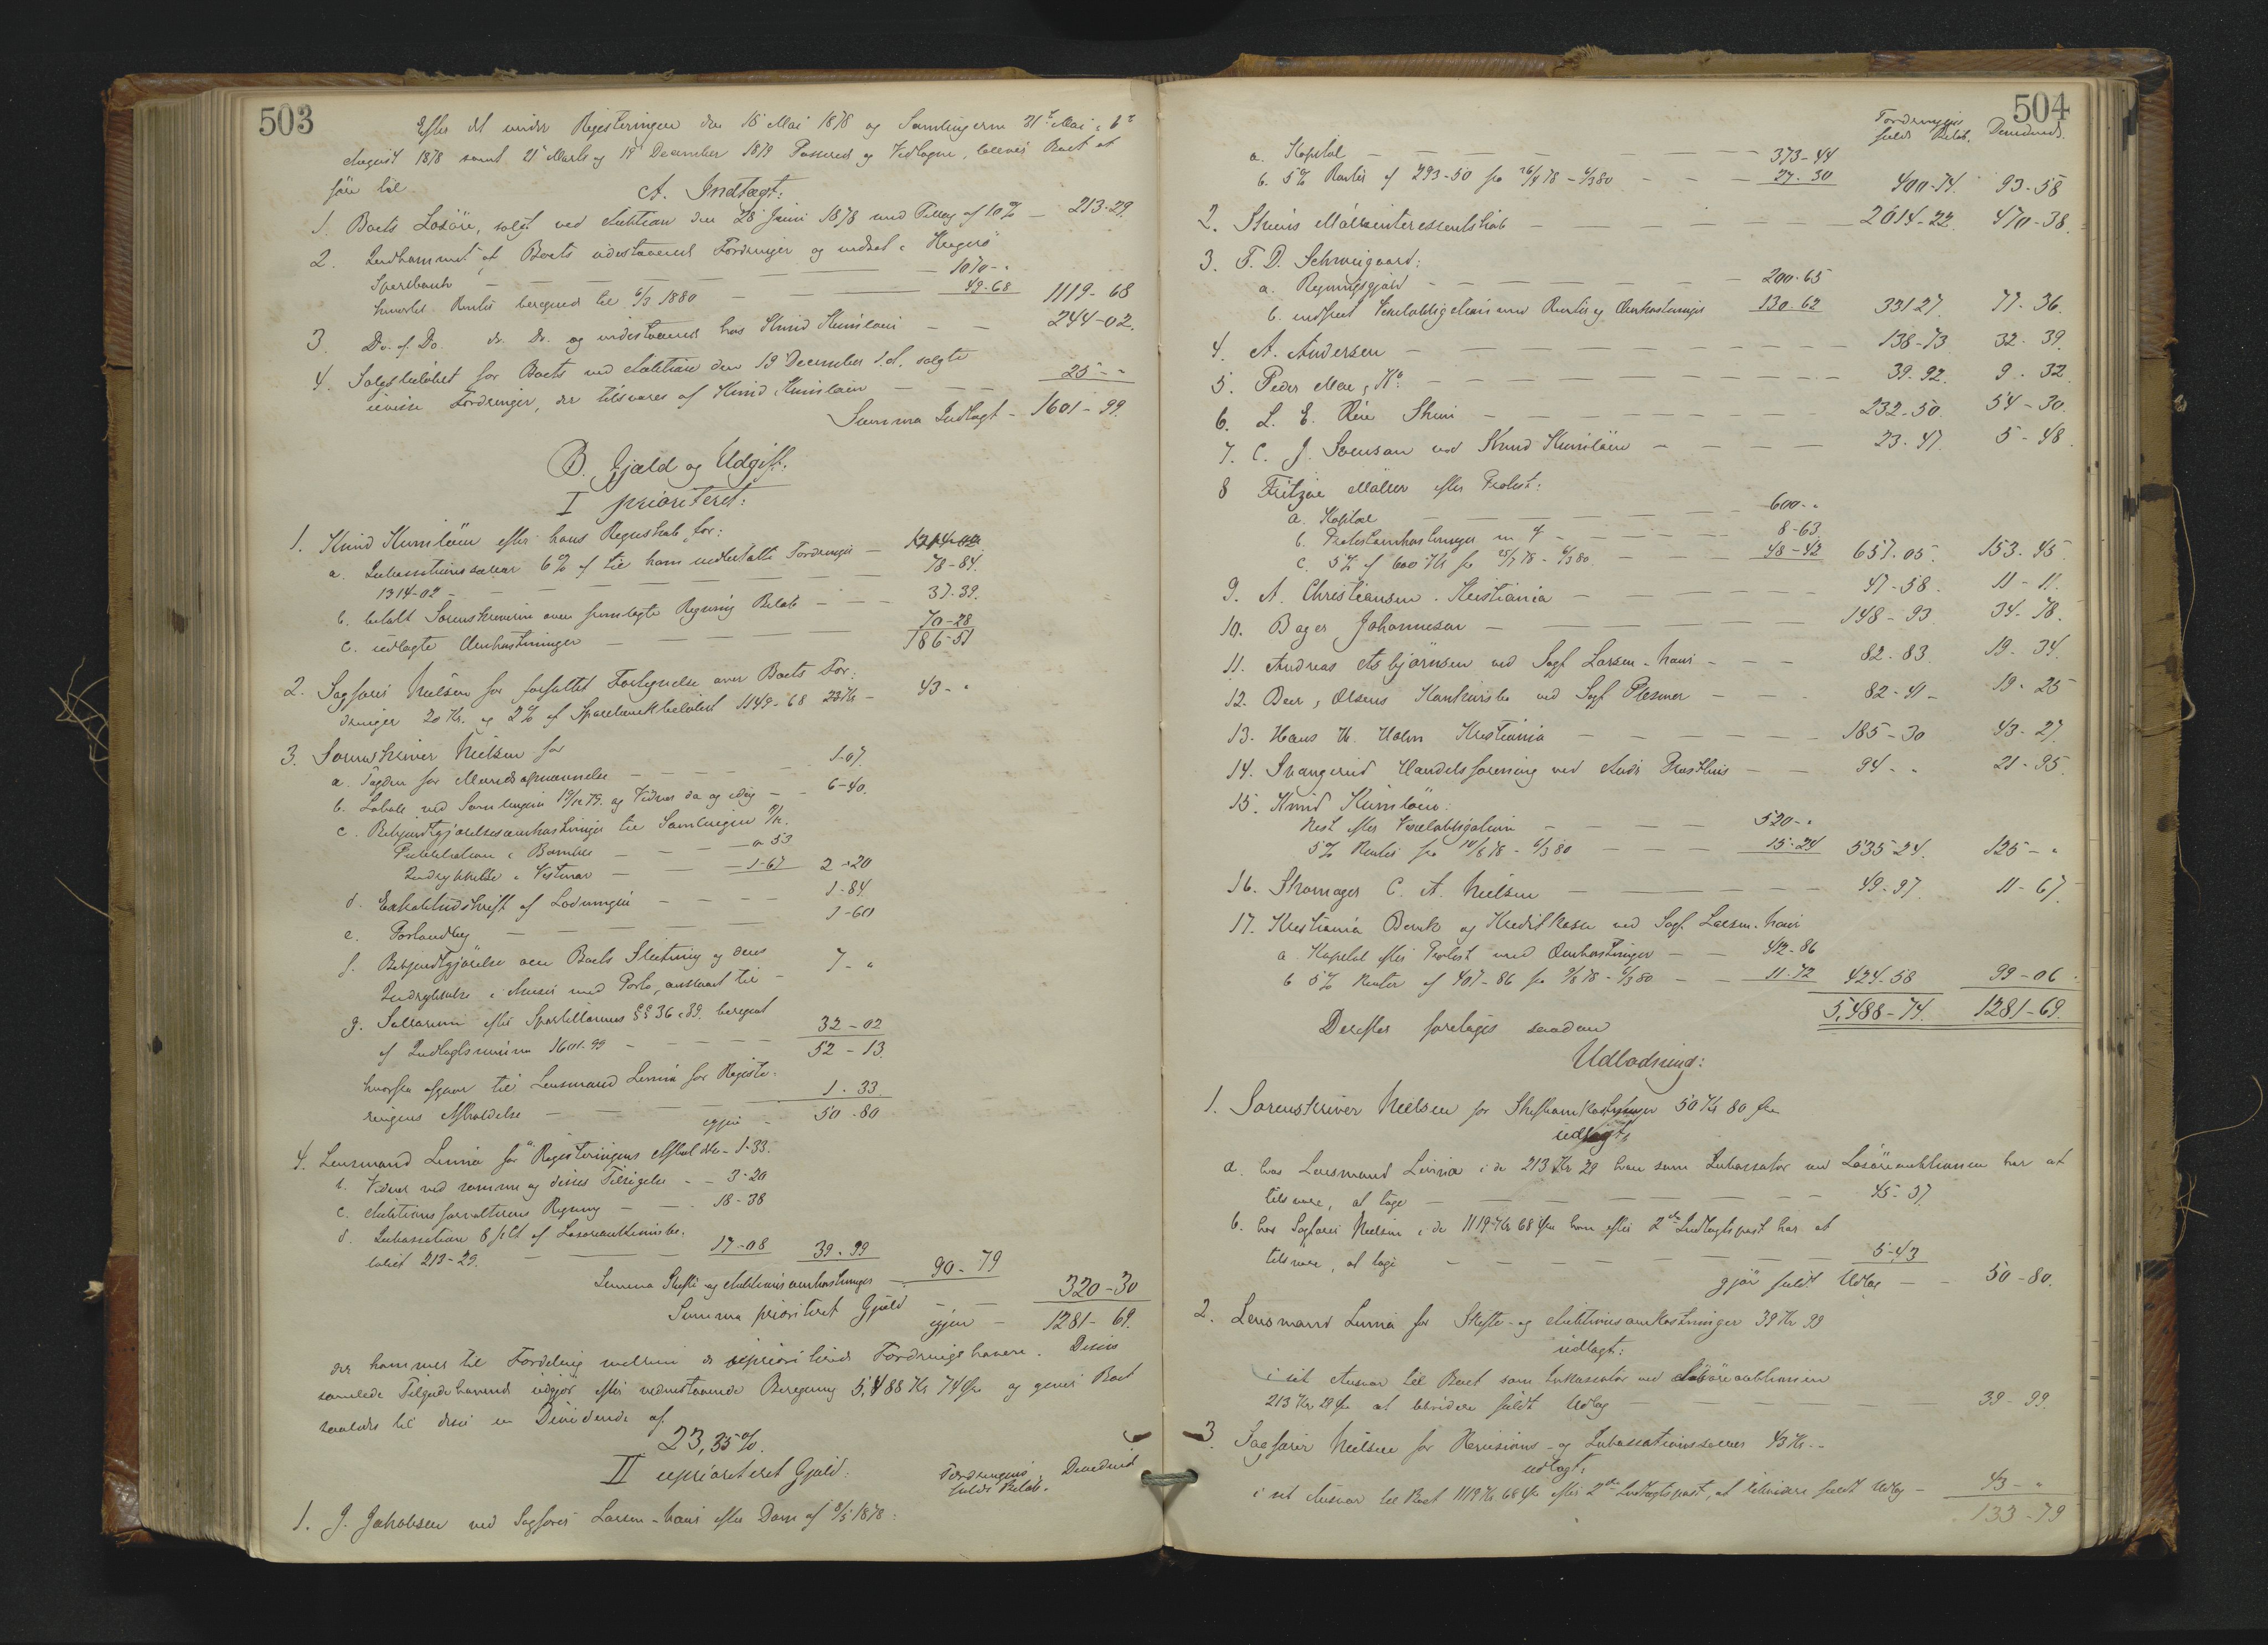 503
Efter det under Registeringen den 15 Mai 1878 og Samlingerne 31te Mai, 6te
August 1878 samt 21 Marts og 19 December 1879 Passered og Vedtagne, bliver Boet at
gjøre til
A. Indtægt:
1. Boets Løsöre, solgt ved Auktion den 28 Juni 1878 med Tillæg af 10% — 213-29.
2. Indkommet af Boets udestaaende Fordringer og indsat i Kragerö
Sparebank — 1070-"
hvortil Renter beregnede til 6/3 1880 — 49-68 1119-68
3. Do. af Do. do. Do. og indestaaende hos Knud — 244-02.
4. Salgsbelöbet for Boets ved Auktion den 19 December f.A. solgte
uvisse Fordringer, der tilsvares af Knud — 25-"
Summa Indtægt — 1601-99.
B. Gjæld og Udgift.
I prioriteret:
1. Knud efter hans Regnskab for:
a. Inkassationssalær 6% af til ham indbetalte Fordringer —
1314-02 — 78-84.
b. betalt Sorenskriveren over fremlagte Regning Beløb — 37-39.
c. udlagte Omkostninger — 70-28
186-51
2. Sagförer Nielsen for forfattet Fortegnelse over Boets For-
dringer 20 Kr. og 2% af Sparebankbelöbet 1149-68 23 Kr — 43-"
3. Sorenskriver Nielsen for
a. Tagden for Mændsopnævnelse — 1-07.
b. Lokale ved Samlingen 19/12 79. og Vidner da og idag — 6-40.
c. Bekjendtgjørelsesomkostninger til Samlingen
Publikation i Bamble — " 53
Indrykkelse i Vestmar — 1-67 2-20
d. Extraktudskrift af Lodningen — 1-84.
e. Forlandtøg — 1-60
f. Bekjendtgjørelse om Boets Slutning og dens
Indrykkelse i Avisen med Porto, anslaaet til — 7-"
g. Sallarium efter Sportellovens §§ 36 & 39. beregnet
af Indtægtssummen 1601-99 — 32-02
52-13.
hvorfra afgaar til Lensmand for Registe-
ringens Afholdelse — 1-33
igjen — 50-80
4. Lensmand for a Registeringens Afholdelse — 1-33.
b. Vidner ved samme og disses Tilsigelse — 3-20
c. Auktionsforvalterens Regning — 18-38
d. Inkassation 8 pCt af Løsøreauktionsbe-
löbet 213-29. — 17-08 39-99
Summa Skifte og Auktionsomkostninger — 90-79
Summa prioriteret Gjæld — 320-30
igjen — 1281-69.
der kommer til Fordeling mellem de uprioriterede Fordringshavere. Disses
samlede Tilgodehavende udgjør efter nedenstaaende Beregning 5,488 Kr 74 Øre og giver Boet
saaledes til disse en Dividende af
23,35%.
II uprioriteret Gjæld:
Fordringens fulde Beløb. Dividend
1. J. Jakobsen ved Sagförer Larsen-hans efter Dom af 8/5 1878:
504
Fordringens fulde Beløb. Dividend.
a. Kapital — 373-44
b. 5% Renter af 293-50 fra 26/4 78 - 6/3 80 — 27-30 400-74. 93-58
2. Skiens Mølleinteressentskab — 2014-22. 470-38.
3. F. D. Schweigaard:
a. Regningsgjæld — 200-65
b. indfriet Vexelobligation med Renter og Omkostninger 130-62 331 27. 77-36.
4. A. Andersen — 138-73 32-39.
5. Peder Moe & Ko. — 39-92. 9-32.
6. L. E. Skien — 232-50. 54-30.
7. C. J. Svensen ved Knud — 23-47. 5-48.
8 Fritzøe Møller efter Protest:
a. Kapital — 600-"
b. Protestomkostninger m v — 8-63
c. 5% af 600 Kr fra 25/7 78 - 6/3 80. — 48-42 657-05. 153-45.
9. A. Christiansen. Kristiania — 47-58. 11-11.
10. Bager Johannesen — 148-93 34-78.
11. Andreas Asbjørnsen ved Sagf Larsen-hans — 82-83. 19-34.
12. Olsens Konkursbo ved Sagf Plesner — 82-41- 19-25
13. Hans H. Holm Kristiania — 185-30 43-27.
14. Handelsforening ved — 94-" 21-95.
15. Knud
Rest efter Vexelobligation — 520-"
5% Renter fra 10/8 78 - 6/3 80 — 15-24 535 24. 125-"
16. Skomager C. A. Nielsen — 49-97. 11-67.
17. Kristiania Bank og Kreditkasse ved Sagf. Larsen-hans
a Kapital efter Protest med Omkostninger — 412-86
b 5% Renter af 407-86 fra 9/8 78 - 6/3 80 — 11-72 424-58 99-06
5,488-74. 1281-69.
Derefter foretages saadan
Udlodning:
1. Sorenskriver Nielsen for Skifteomkostninger 50 Kr 80 Øre
udlagt:
a. hos Lensmand i de 213 Kr 29 han som Inkassator ved Løsöreauktionen har at
tilsvare, at tage — 45-37.
b. hos Sagförer Nielsen i de 1119 Kr 68 Øre han efter 2den Indtægtspost har at
tilsvare, at tage — 5-43
gjør fuldt Udlæg — 50-80.
2. Lensmand for Skifte- og Auktionsomkostninger 39 Kr 99
udlagt:
i sit Ansvar til Boet som Inkassator ved Løsøreauktionen
213 Kr 29 Øre at likvidere fuldt Udlæg — 39-99.
3. Sagförer Nielsen for Revisions- og Inkassationssalær 43 Kr. —
udlagt:
i sit Ansvar til Boet 1119 Kr 68 Øre efter 2den Indtægtspost, at likvidere fuldt Udlæg — 43-"
133-79